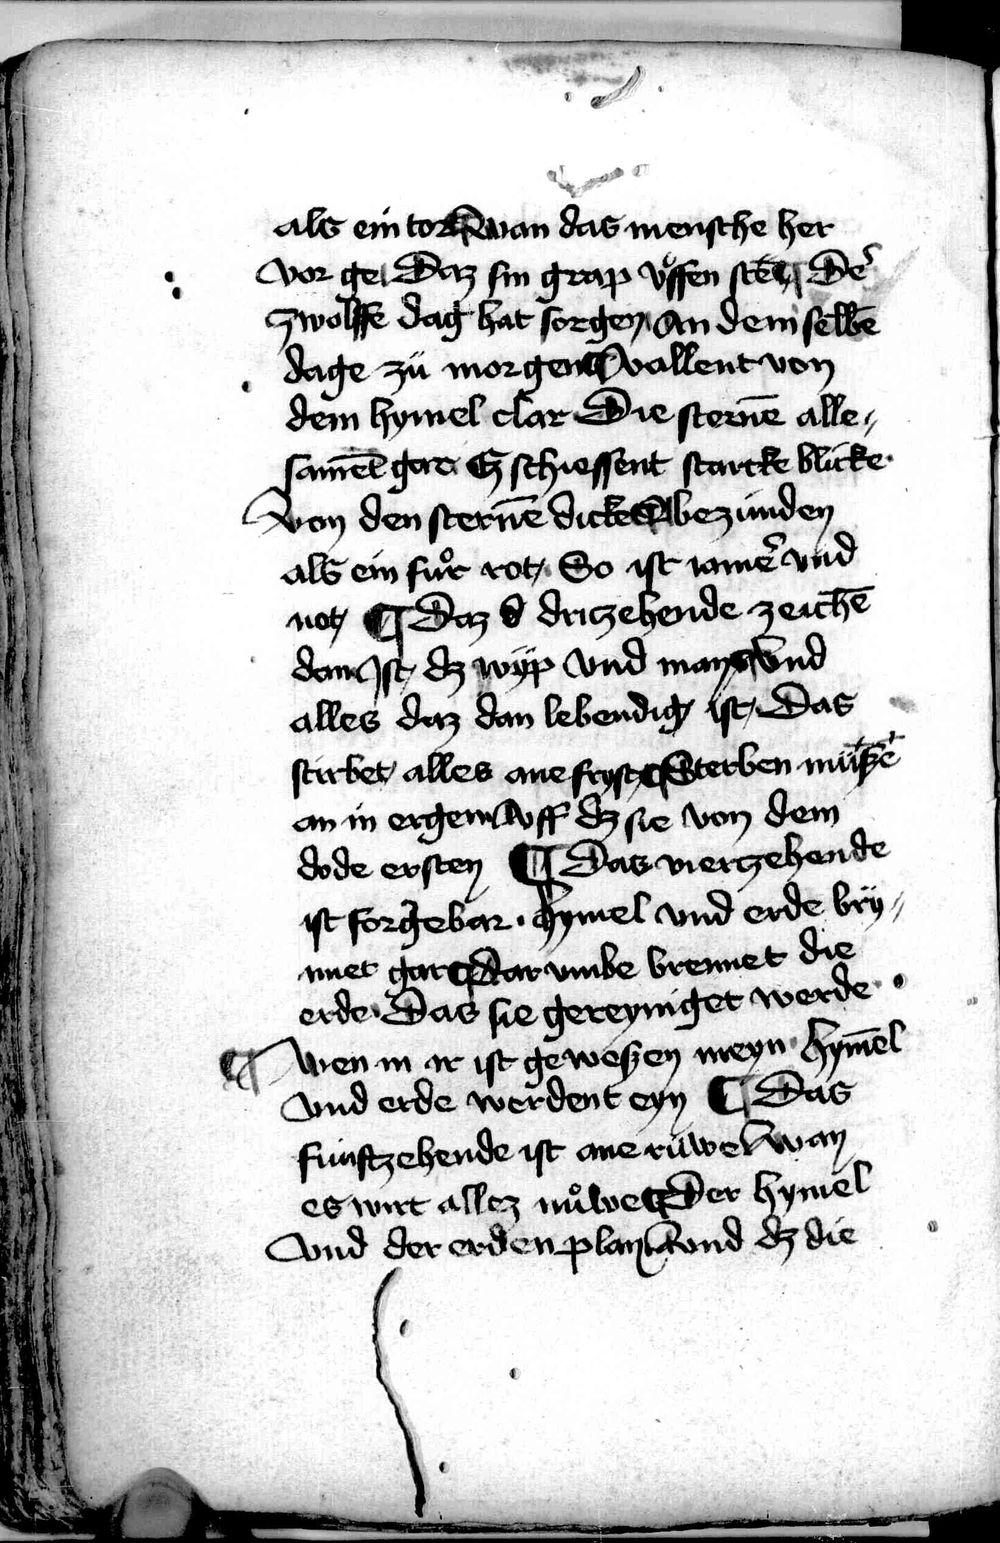 als ein tor Wan das mensche her
vor ge Daz sin grap uͦffen ste ¶ De᷑
zwolffe dag hat sorgen An dem selbē
dage zü morgen Vallent von
dem hymel clar Die sternē alle⸗
samēl gar Es schiessent starcke blicke
Von den sternē dicke bezunden
als ein fuͦr rot So ist iame᷑ und
not ¶ Daz d drizehende zeichē
dan Ist dz wyp Und man Und
alles daz dan lebendig ist Das
stirbet alles ane fryst Sterben müßē
an in ergen Uff dz sie von dem
dode ersten ¶ Das vierzehende
ist sorgebar hymel und erde bry⸗
nnet gar Dar umbe brennet die
erde Das sie gereyniget werde
Wen in ir ist geweßen meyn hymēl
Und erde werdent eyn ¶ Das
funftzehende ist ane rüwe Wan
es wirt allez nuͦwe Der hymel
Und der erden plan Und dz die